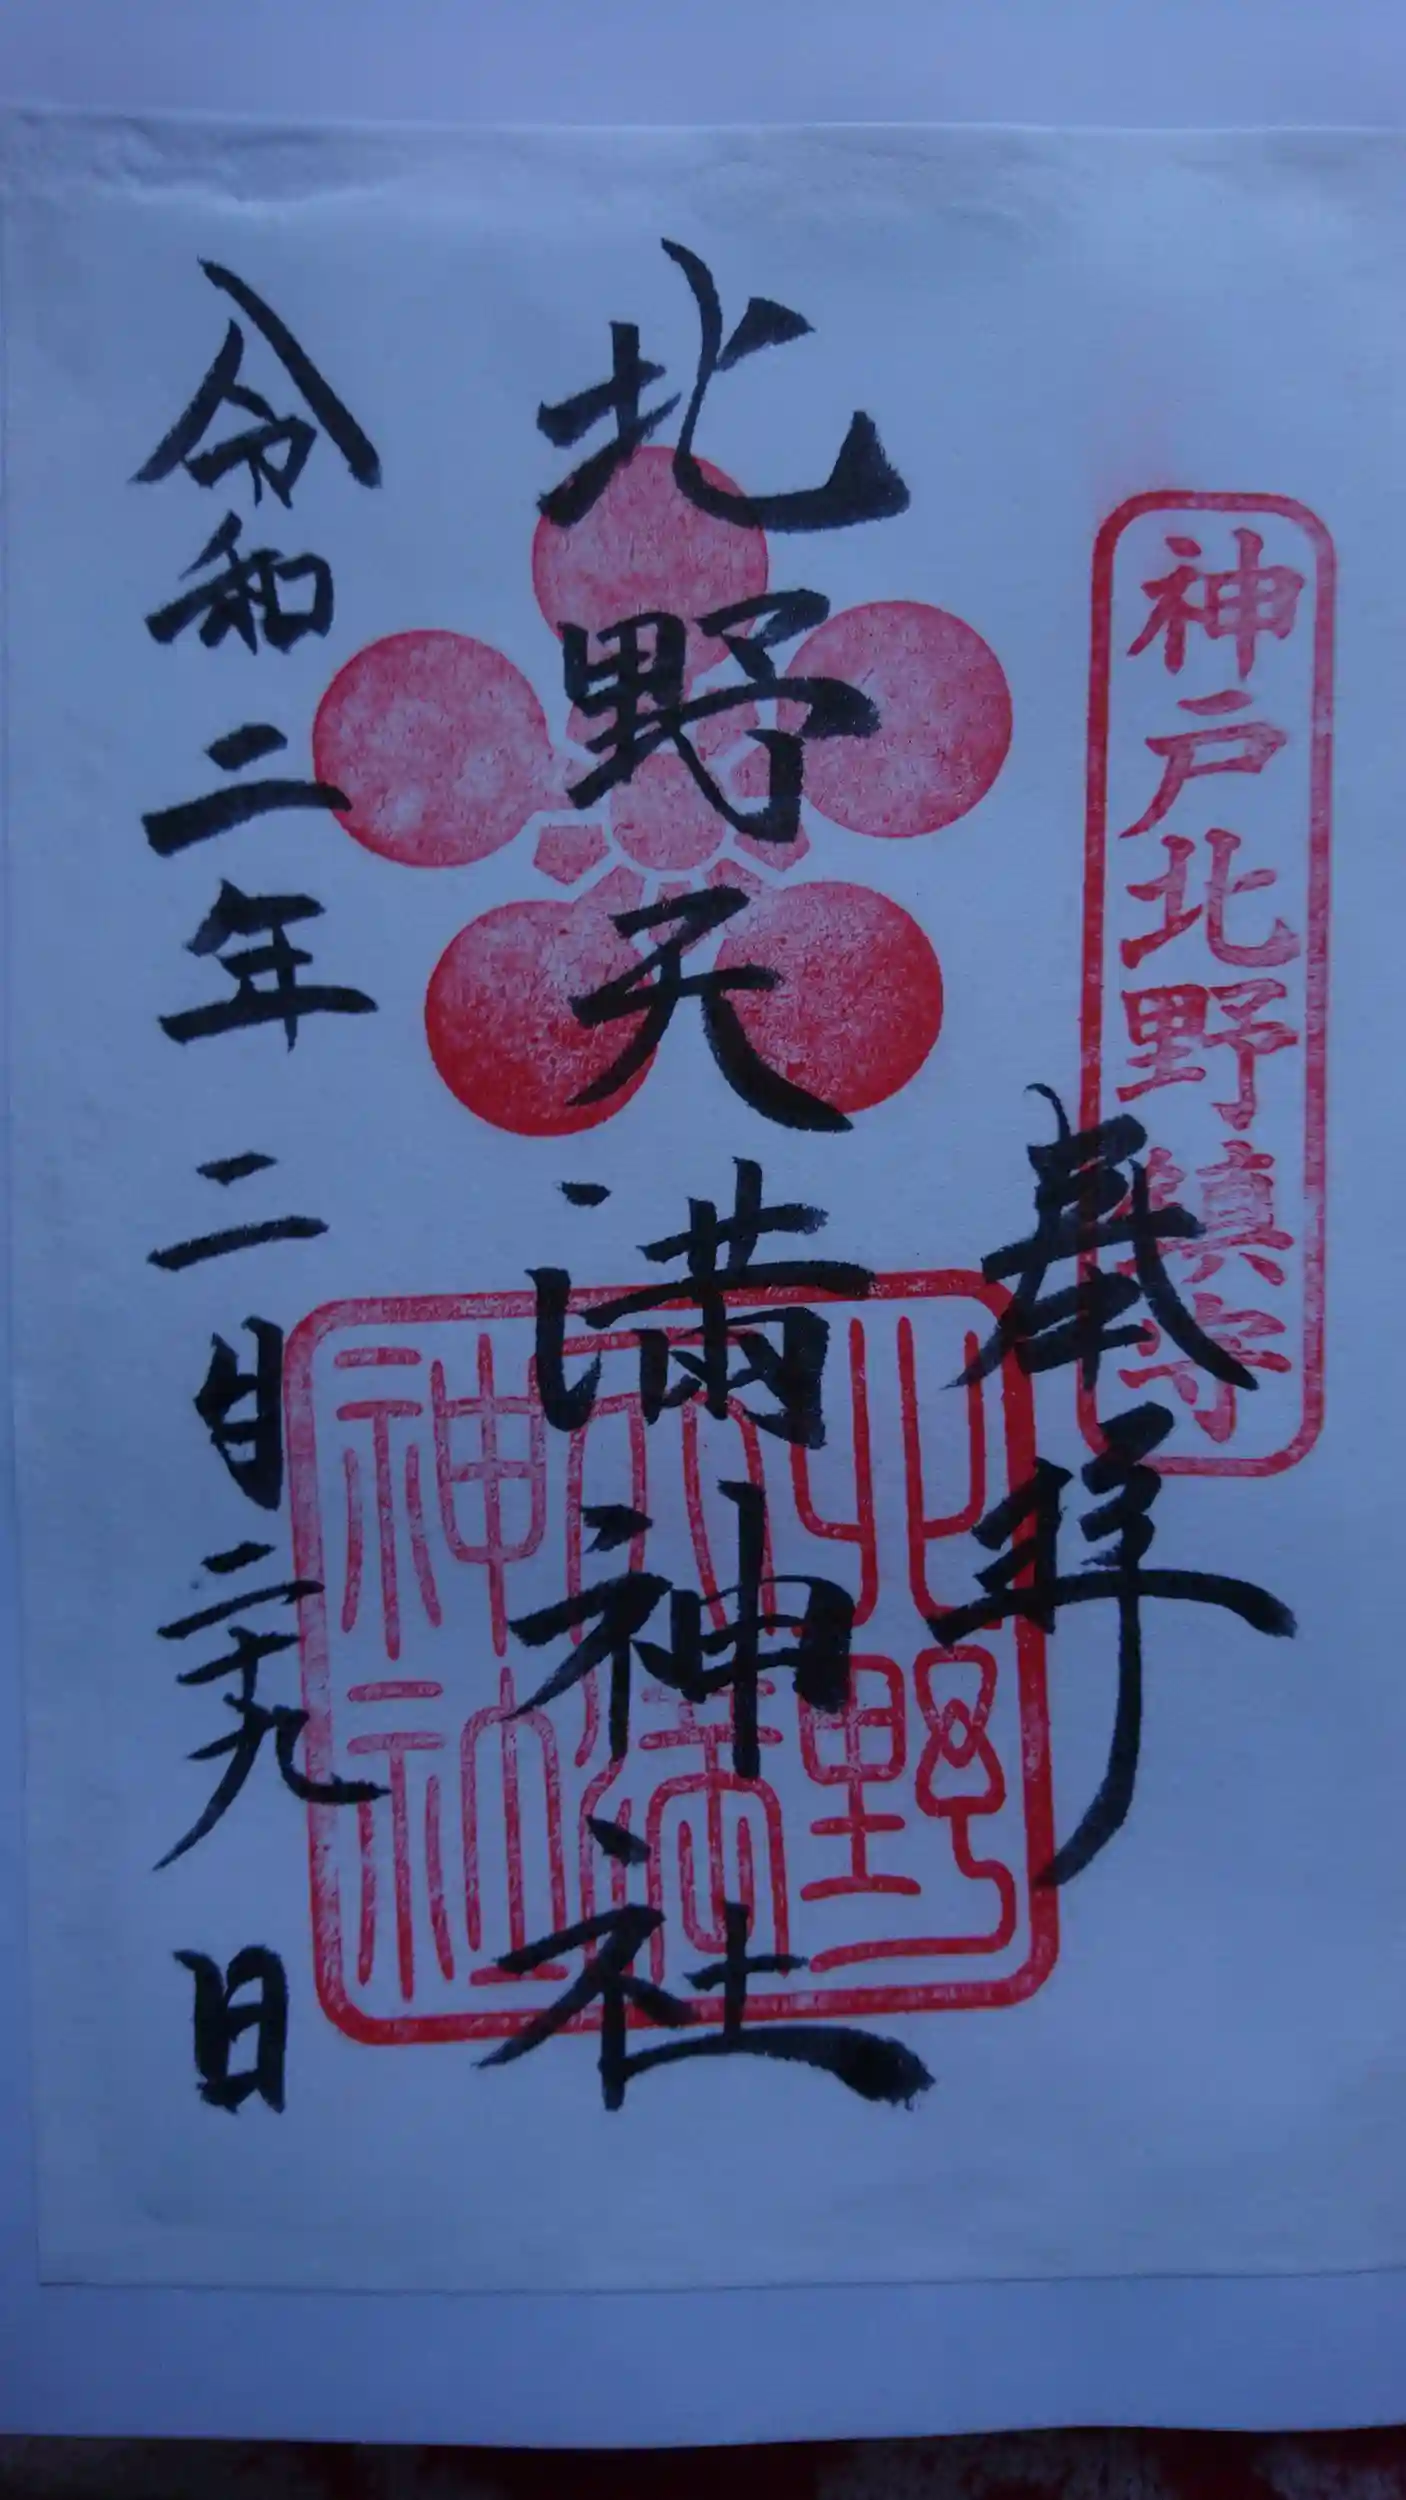 神戸北野鎮守
奉拝
北野天満神社
北野天満神社
令和二年二月二十九日